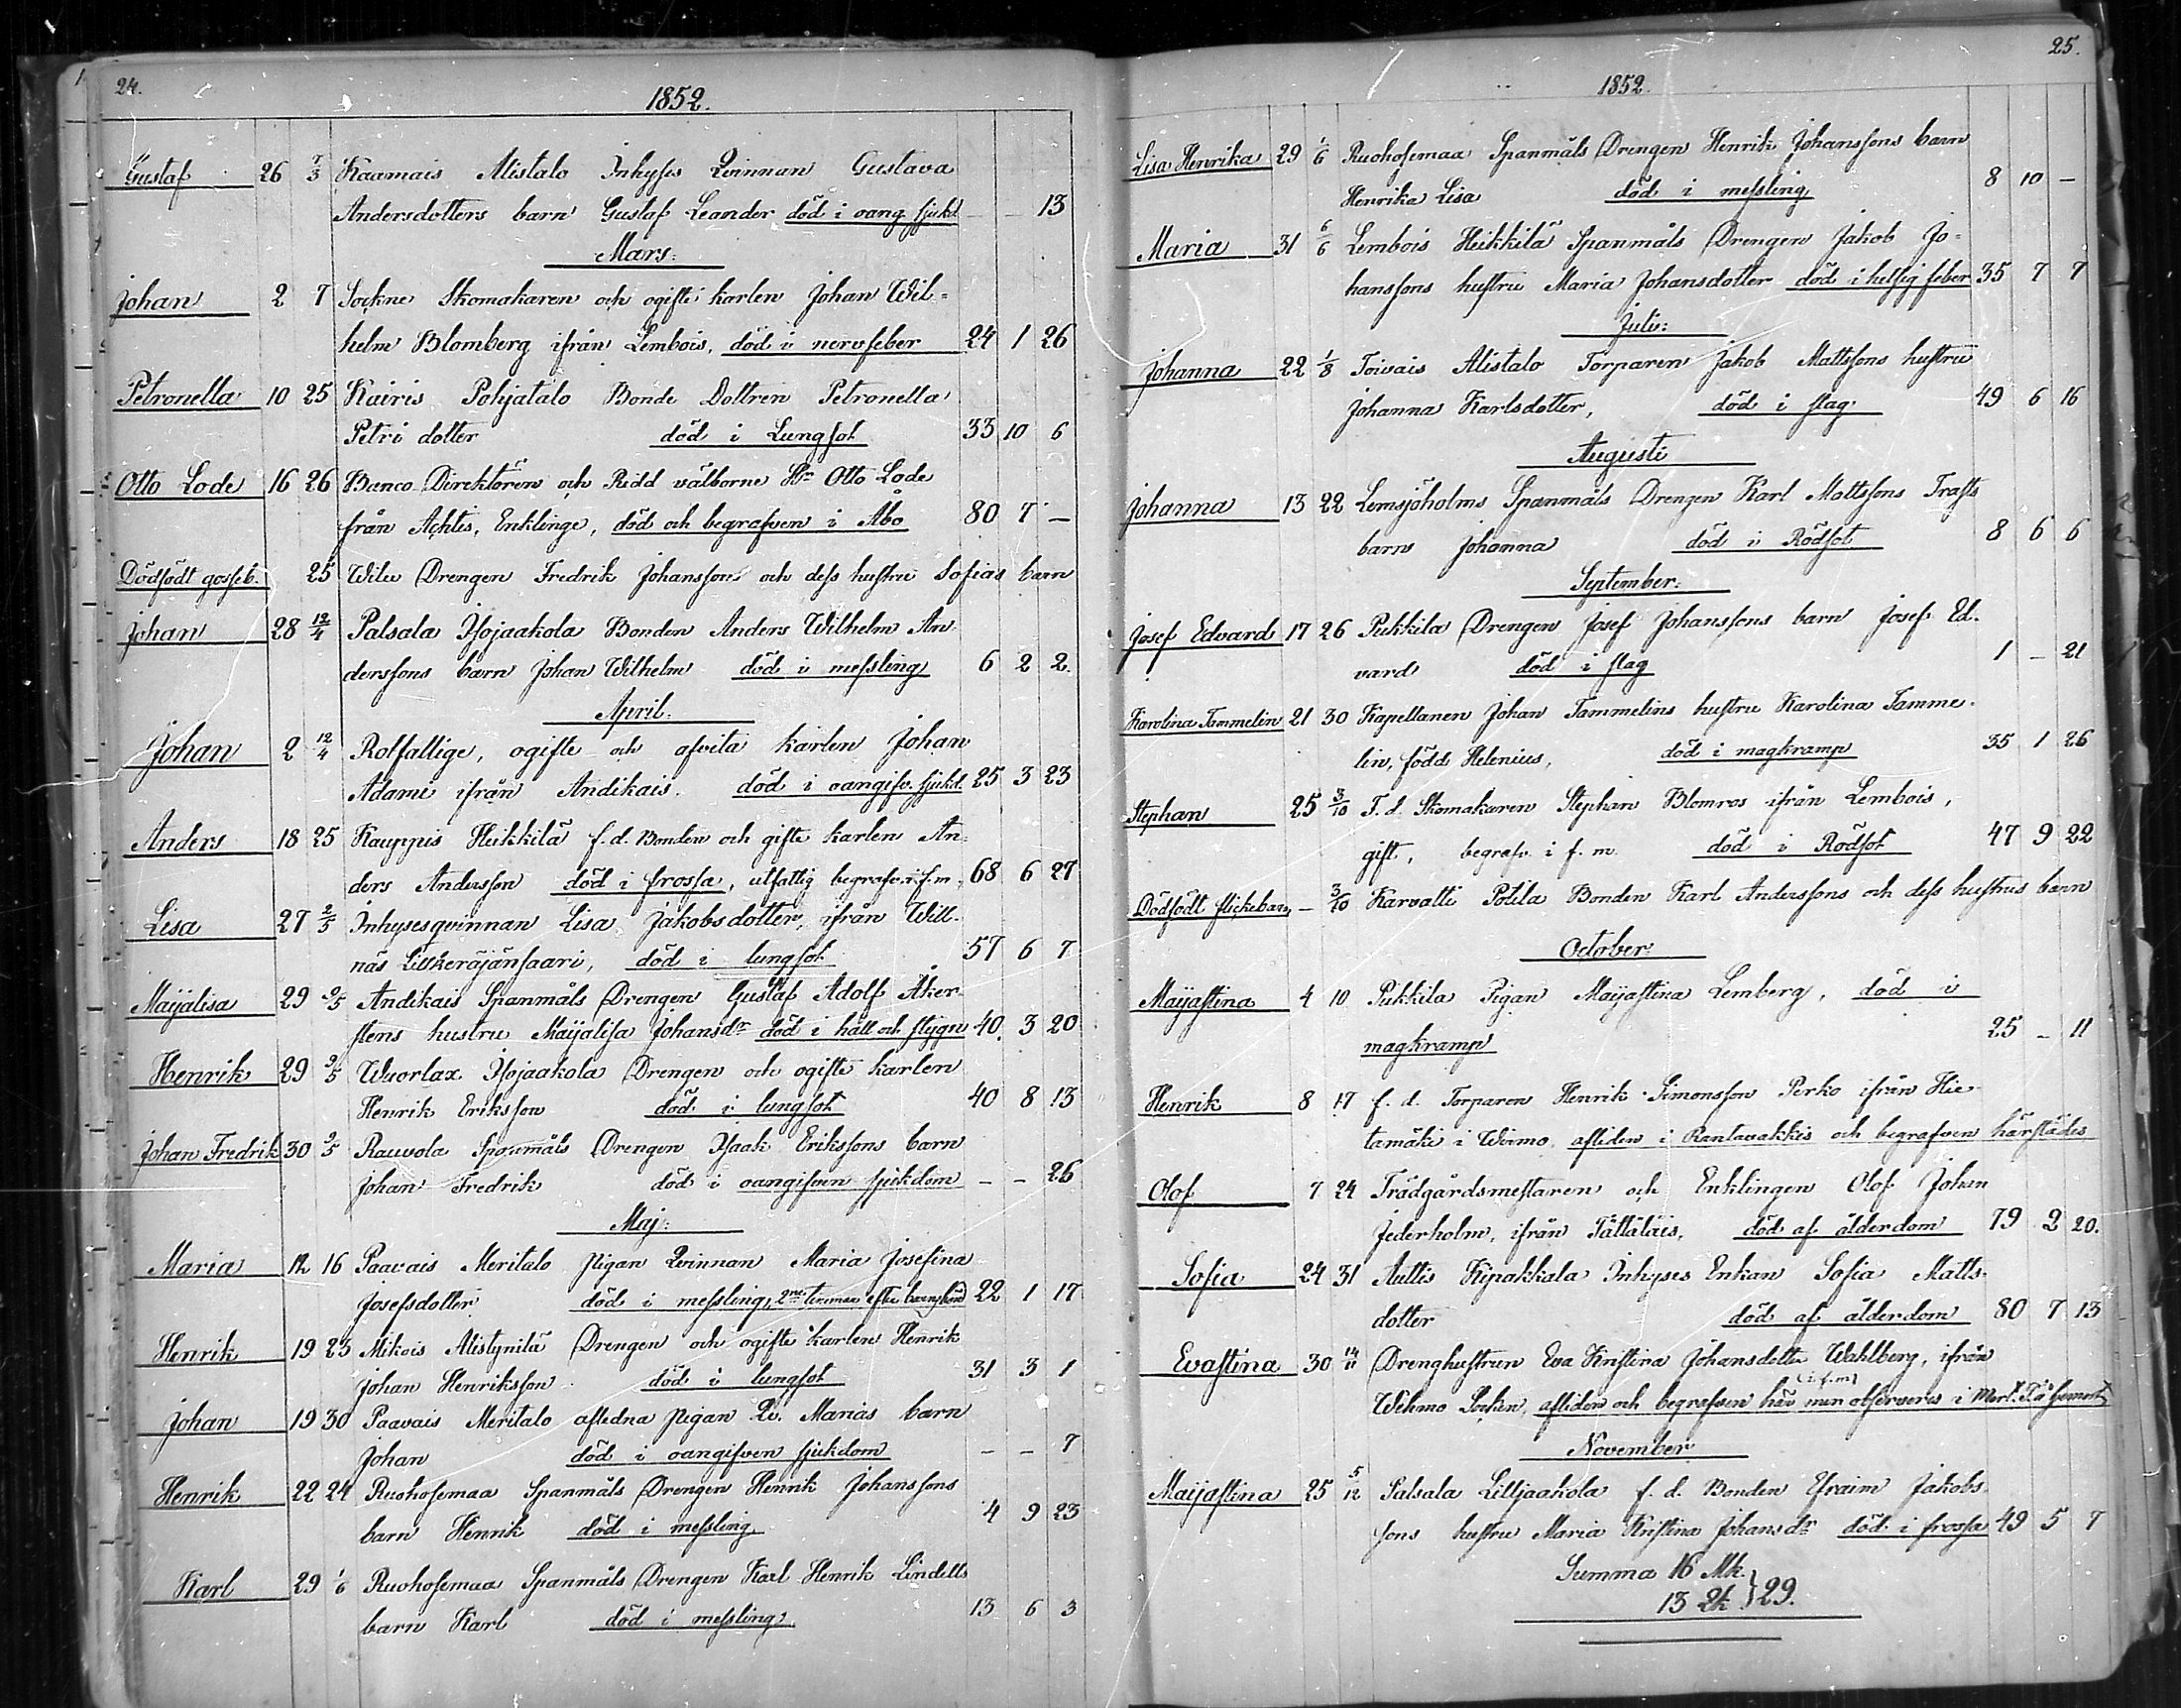 24.
1852.
Gustaf 26 7/3 Kaamais Alistalo Inhyses Qvinnan Gustava
Andersdotters barn Gustaf Leander död i oang. sjukd. - - 13
Mars:
Johan 2 7 Sockne Skomakaren och ogifte karlen Johan Wil=
helm Blomberg ifrån Lembois, död i nervfeber 24 1 26
Petronella 10 25 Kairis Pohjatalo Bonde Dottren Petronella
Petri dotter död i Lungsot 33 10 6
Otto Lode 16 26 Banco Direktören och Ridd välborne Hr Otto Lode
från Achtis, Enklinge, död och begrafven i Åbo 80 7 -
Dödfödt gosseb. 25 Wilu Drengen Fredrik Johanssons och dess hustru Sofias barn
Johan 28 12/4 Palsala Isojaakola Bonden Anders Wilhelm An
derssons barn Johan Wilhelm död i messling 6 2 2.
April.
Johan 2 12/4 Rotfattige, ogifte och afvita karlen Johan
Adami ifrån Andikais. död i oangifv. sjukd. 25 3 23
Anders 18 25 Kauppis Heikkilä f.d. Bonden och gifte karlen An=
ders Andersson död i frossa, utfattig begrafv. i f.m., 68 6 27
Lisa 27 2/5 Inhysesqvinnan Lisa Jakobsdotter, ifrån Will-
näs död i lungsot 57 6 7
Maijalisa 29 9/5 Andikais Spanmåls Drengen Gustaf Adolf Åker-
stens hustru Maijalisa Johansdr död i håll och stygn 40. 3 20
Henrik 29 9/5 Wuorlax Isojaakola Drengen och ogifte karlen
Henrik Eriksson död i lungsot 40 8 13
Johan Fredrik 30 9/5 Rauvola Spanmåls Drengen Isaak Erikssons barn
Johan Fredrik död i oangifven sjukdom - - 26
Maj:
Maria 12 16 Paavais Meritalo Pigan Qvinnan Maria Josefina
Josefsdotter död i messling, 2ne timmar efter barnsbörd 22 1 17
Henrik 19 23 Mikois Alistynilä Drengen och ogifte karlen Henrik
Johan Henriksson död i lungsot 31 3 1
Johan 19 30 Paavais Meritalo aflidna pigan Qv. Marias barn
Johan död i oangifven sjukdom - - 7
Henrik 22 24 Ruohosemaa Spanmåls Drengen Henrik Johanssons
barn Henrik död i messling 4 9 23
Karl 29 1/6 Ruohosemaa Spanmåls Drengen Karl Henrik Lindells
barn Karl död i messling 13 6 3
25.
1852
Lisa Henrika 29 1/6 Ruohosemaa Spanmåls Drengen Henrik Johanssons barn
Henrika Lisa död i messling 8 10 -
Maria 31 6/6 Lembois Heikkilä Spanmåls Drengen Jakob Jo=
hanssons hustru Maria Johansdotter död i hetsig feber 35 7 7
Juli:
Johanna 22 1/8 Toivais Alistalo Torparen Jakob Mattssons hustru
Johanna Karlsdotter, död i slag 49 6 16
Augusti
Johanna 13 22 Lemsjöholms Spanmåls Drengen Karl Mattssons Trasts
barn Johanna död i Rödsot 8 6 6
September:
Josef Edvard 17 26 Pukkila Drengen Josef Johanssons barn Josef Ed.
vard död i slag 1 - 21
Karolina Tammelin 21 30 Kapellanen Johan Tammelins hustru Karolina Tamme-
lin, född Helenius, död i magkramp 35 1 26
Stephan 25 3/10 F. d. Skomakaren Stephan Blomros ifrån Lembois,
gift, begrafv. i f.m. död i Rödsot 47 9 22
Dödfödt flickebarn - 3/10 Karvatti Potila Bonden Karl Anderssons och dess hustrus barn
October
Maijastina 4 10 Pukkila Pigan Maijastina Lemberg, död i
magkramp 25 - 11
Henrik 8 17 f. d. Torparen Henrik Simonsson Perko ifrån Hie
tamäki i Wirmo, afliden i Rantavakkis och begrafven härstädes
Olof 7 24 Trädgårdsmestaren och Enklingen Olof Johan
Jederholm, ifrån Tättäläis, död af ålderdom 79 2 20.
Sofia 24 31 Auttis Kipakkala Inhyses Enkan Sofia Matts-
dotter död af ålderdom 80 7 13
Evastina 30 14/11 Drenghustrun Eva Kristina Johansdotter Wahlberg, ifrån
(i f.m)
Wehmo Socken, afliden och begrafven här men observeras i
November
Maijastina 25 5/12 Palsala Lilljaakola f. d. Bonden Efraim Jakobs
sons hustru Maria Kristina Johansdr död i frossa 49 5 7
Summa 16 Mk.
13 Qk } 29.